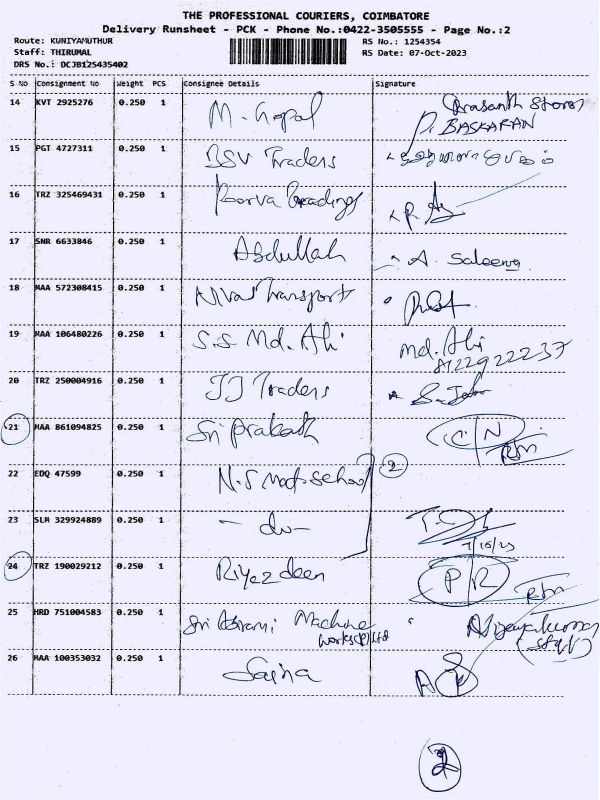 THE PROFESSIONAL COURIERS, COIMBATORE
Delivery Runsheet - PCK - Phone No.:0422-3505555 - Page No.:2
Route: KUNIYAMUTHUR RS No.: 1254354
Staff: THIRUMAL RS Date: 07-Oct-2023
DRS No.: DCJB125435402
S No Consignment No Weight PCS Consignee Details Signature
14 KVT 2925276 0.250 1 M. Gopal Prasanth Stores
P. BASKARAN
15 PGT 4727311 0.250 1 BSV Traders
16 TRZ 325469431 0.250 1 Poorva Tradings
17 SNR 6633846 0.250 1 Abdullah A. Saleema
18 MAA 572308415 0.250 1 Transport
19 MAA 106480226 0.250 1 S.S Md. Ali Md. Ali
20 TRZ 250004916 0.250 1 JJ Traders
21 MAA 861094825 0.250 1 Sri Prakash CN
22 EDQ 47599 0.250 1 N.S Mat. School 2
23 SLM 329924889 0.250 1 - do -
7/10/23
24 TRZ 190029212 0.250 1 Riyazdeen PR
25 HRD 751004583 0.250 1 Sri Abirami Machine Vijayakumar
Works (P) Ltd (Staff)
26 MAA 100353032 0.250 1 Saina
2